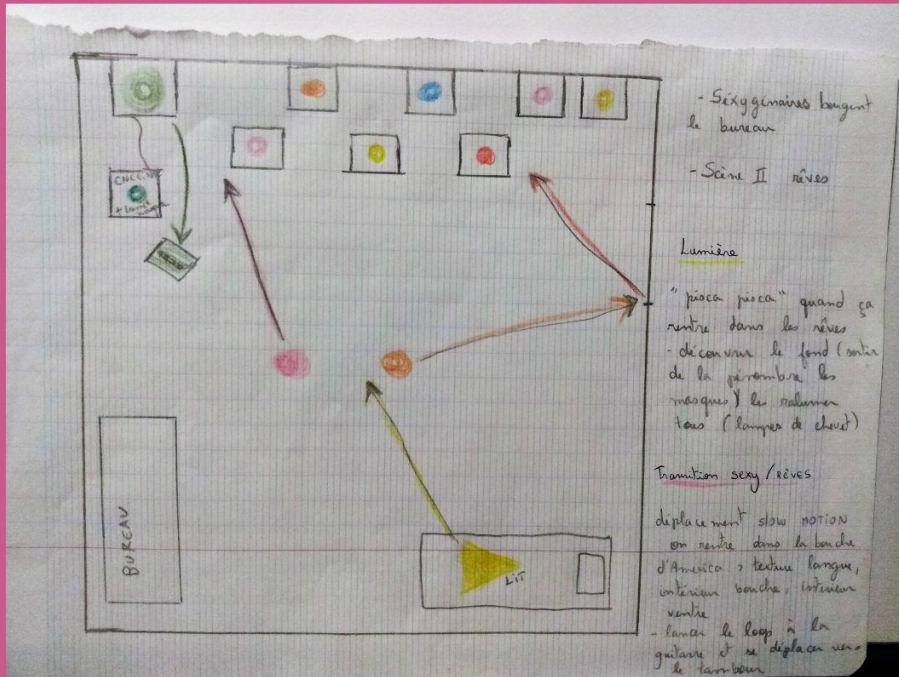 - Séxygénaires bougent
le bureau
- Scène II rêves
Lumière
"pisca pisca" quand ça
rentre dans les rêves
- découvrir le fond (sortir
de la pénombre les
masques) les rallumer
tous (lampes de chevet)
Transition sexy / RÊVES
déplacement slow MOTION
on rentre dans la bouche
d'America > texture langue,
intérieur bouche, intérieur
ventre
- lancer le loop à la
guitare et se déplacer vers
le tambour
BUREAU
LIT